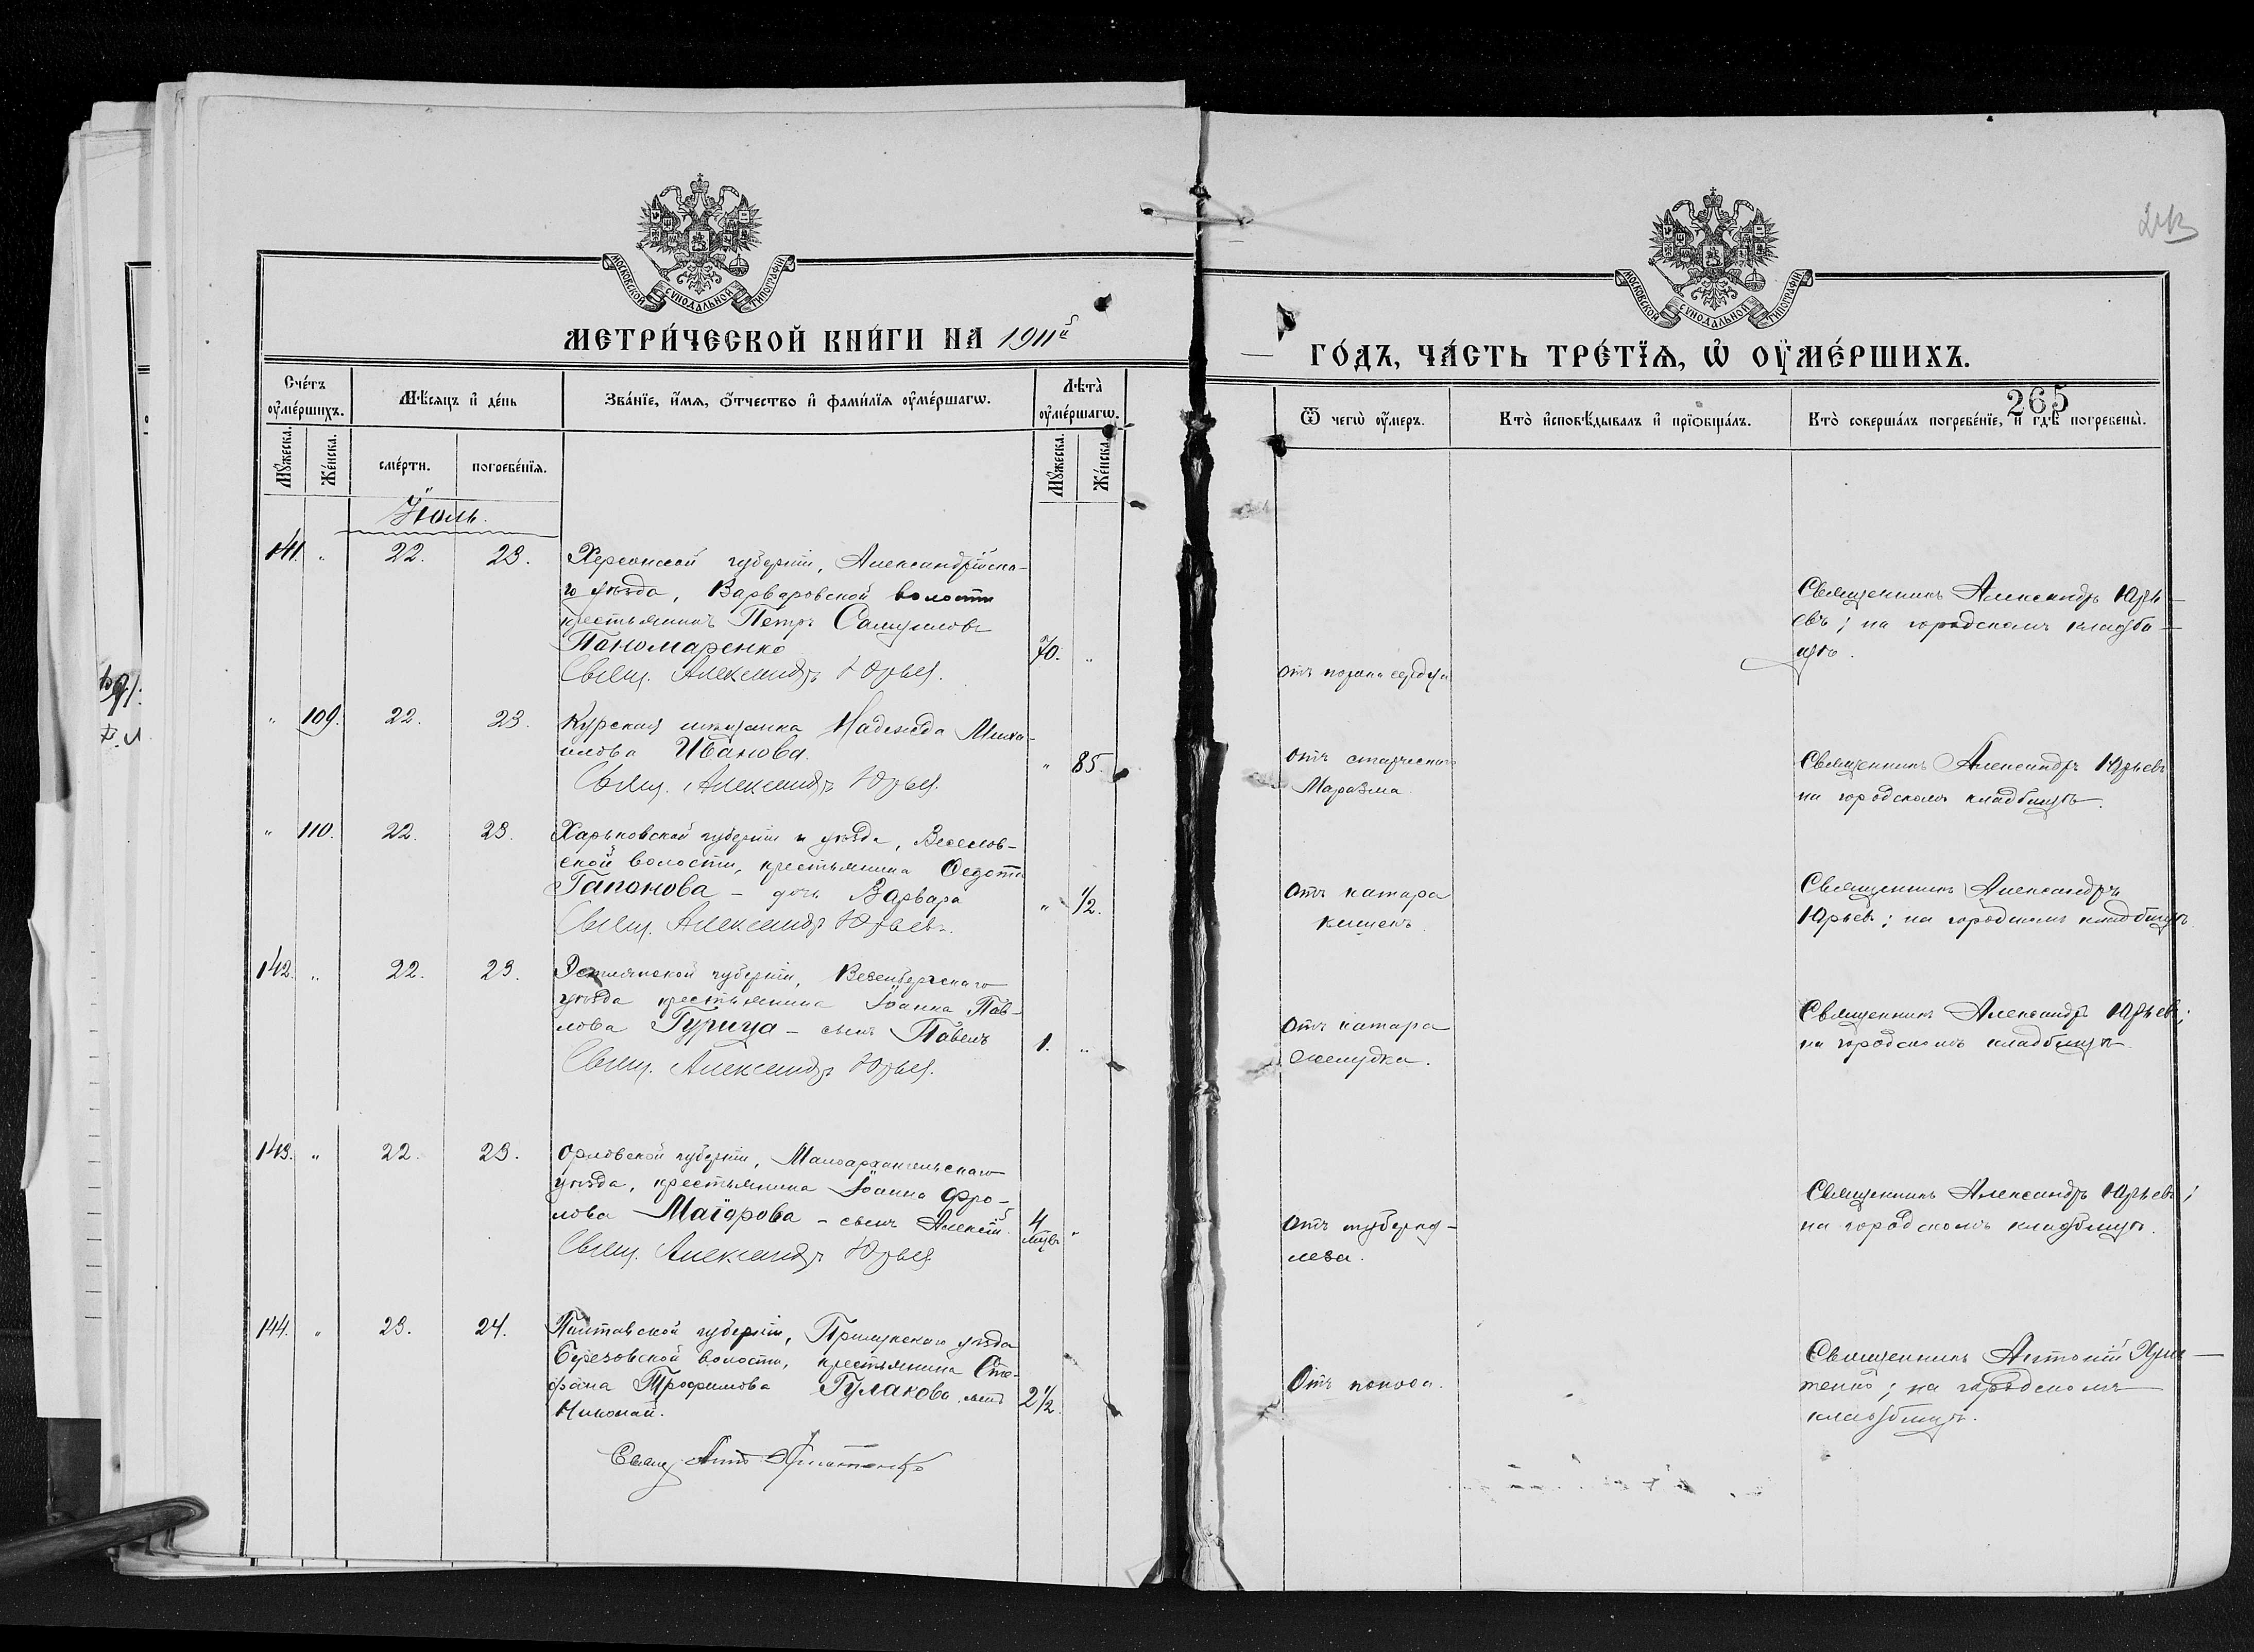 МОСКОВСКОЙ СУНОДАЛЬНОЙ ТИПОГРАФІИ
МОСКОВСКОЙ СУНОДАЛЬНОЙ ТИПОГРАФІИ
МЕТРИ́ЧЕСКОЙ КНИ́ГИ НА 1911й
ГО́ДЪ, ЧА́СТЬ ТРЕ́ТЇѦ, Ѡ ОУ҆МЕ́РШИХЪ.
265
Сче́тъ оу҆ме́ршихъ.
Мѣ́сяцъ и҆ де́нь
Зва́нїе, и҆́мя, ѻ҆́тчество и҆ фами́лїя оу҆ме́ршагѡ.
Лѣ̀та оу҆ме́ршагѡ.
Ѿ чегѡ̀ оу҆́меръ.
Кто̀ и҆сповѣ́дывалъ и҆ прїѡбща́лъ.
Кто̀ соверша́лъ погребе́нїе, и҆ гдѣ̀ погребены̀.
Мꙋ́жеска. Же́нска. сме́рти. погребе́нїя. Мꙋ́жеска. Же́нска.
Іюль.
141. " 22. 23. Херсонской губерніи, Александрійска-
го уѣзда, Варваровской волости
крестьянинъ Петръ Самуиловъ
Пономаренко 70. "
Свящ. Александръ Юрьев.
Отъ порока сердца
Священникъ Александръ Юрь-
евъ; на городскомъ кладби-
щѣ.
" 109. 22. 23. Курская мѣщанка Надежда Миха-
илова Иванова. " 85.
Свящ. Александръ Юрьев.
Отъ старческаго
Маразма.
Священникъ Александръ Юрьевъ
на городскомъ кладбищѣ.
" 110. 22. 23. Харьковской губерніи и уѣзда, Веселов-
ской волости, крестьянина Ѳедота
Гапонова - дочь Варвара " 1/2.
Свящ. Александръ Юрьевъ.
Отъ катара
кишекъ.
Священникъ Александръ
Юрьевъ; на городскомъ кладбищѣ
142. " 22. 23. Эстлянской губерніи, Везенбергскаго
уѣзда крестьянина Іоанна Пав-
лова Гурица - сынъ Павелъ 1. "
Свящ. Александръ Юрьев.
Отъ катара
желудка.
Священникъ Александръ Юрьевъ;
на городскомъ кладбищѣ
143. " 22. 23. Орловской губерніи, Малоархангельскаго
уѣзда, крестьянина Іоанна Фро-
лова Маіорова - сынъ Алексѣй. 4 мцѣ "
Свящ. Александръ Юрьев
Отъ туберку-
леза.
Священникъ Александръ Юрьевъ;
на городскомъ кладбищѣ.
144. " 23. 24. Полтавской губерніи, Прилукскаго уѣзда
Березовской волости, крестьянина Сте-
фана Трофимова Гулакова, сынъ 2 1/2.
Николай.
Отъ поноса.
Священникъ Антоній
на городскомъ
кладбищѣ.